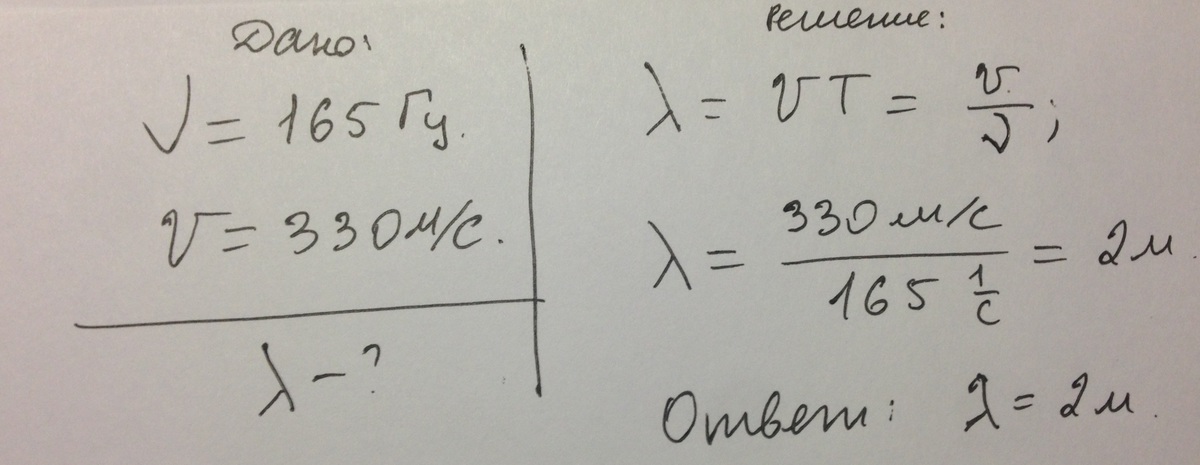 Дано:
ν = 165 Гц.
v = 330 м/с.
λ - ?
Решение:
λ = vT = v/ν;
λ = 330 м/с / 165 1/с = 2 м.
Ответ: λ = 2 м.